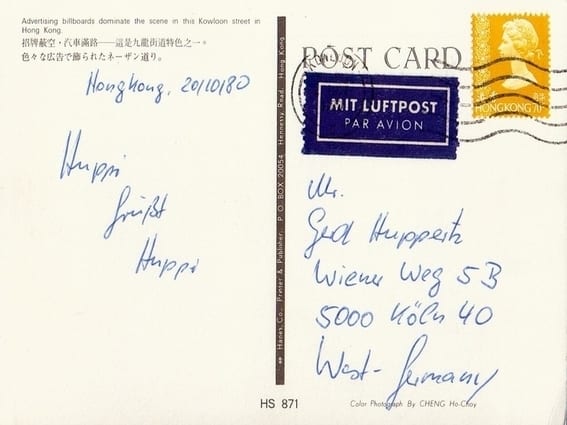 Advertising billboards dominate the scene in this Kowloon street in
Hong Kong.
招牌蔽空，汽車滿路——這是九龍街道特色之一。
色々な広告で飾られたネーザン道り。
Hongkong, 20/10/80
Huppi
grüßt
Huppi
** Hanes, Co., Printer & Publisher, P. O. BOX 20054, Hennessy Road, Hong Kong
POST CARD
KOWLOON
MIT LUFTPOST
PAR AVION
香港
HONG KONG 70¢
Mr.
Gerd Huppertz
Wiener Weg 5B
5000 Köln 40
West-Germany
HS 871
Color Photograph By CHENG Ho-Choy